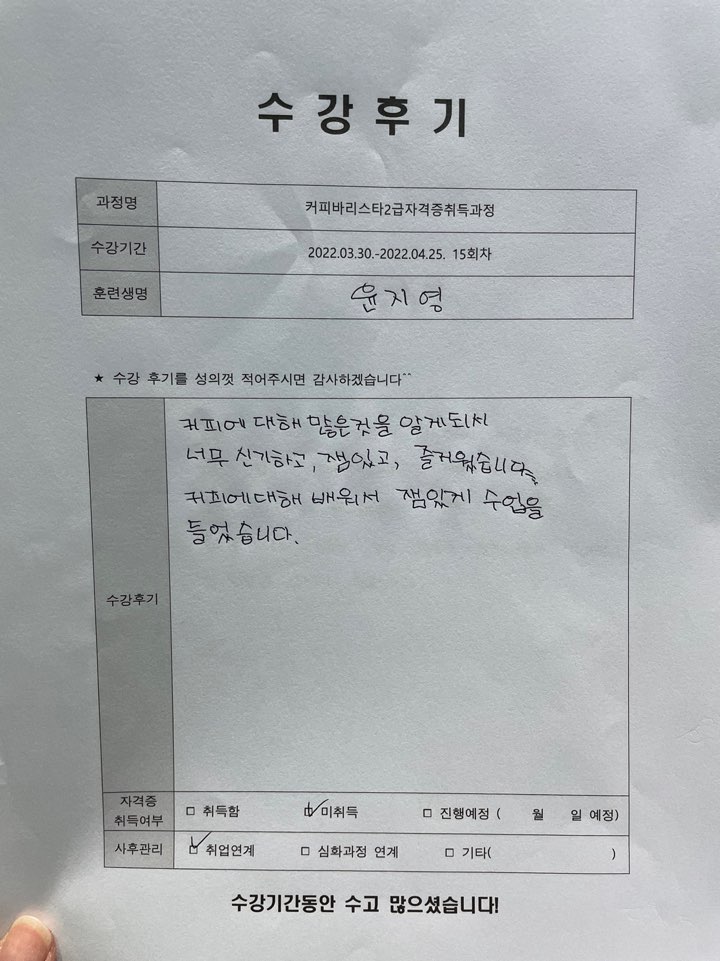 수강후기
과정명 커피바리스타2급자격증취득과정
수강기간 2022.03.30.-2022.04.25. 15회차
훈련생명 윤지영
★ 수강 후기를 성의껏 적어주시면 감사하겠습니다^^
커피에 대해 많은것을 알게되서
너무 신기하고, 잼있고, 즐거웠습니다
커피에대해 배워서 잼있게 수업을
들었습니다.
수강후기
자격증
취득여부
□ 취득함 ☑ 미취득 □ 진행예정 ( 월 일 예정)
사후관리 ☑ 취업연계 □ 심화과정 연계 □ 기타( )
수강기간동안 수고 많으셨습니다!